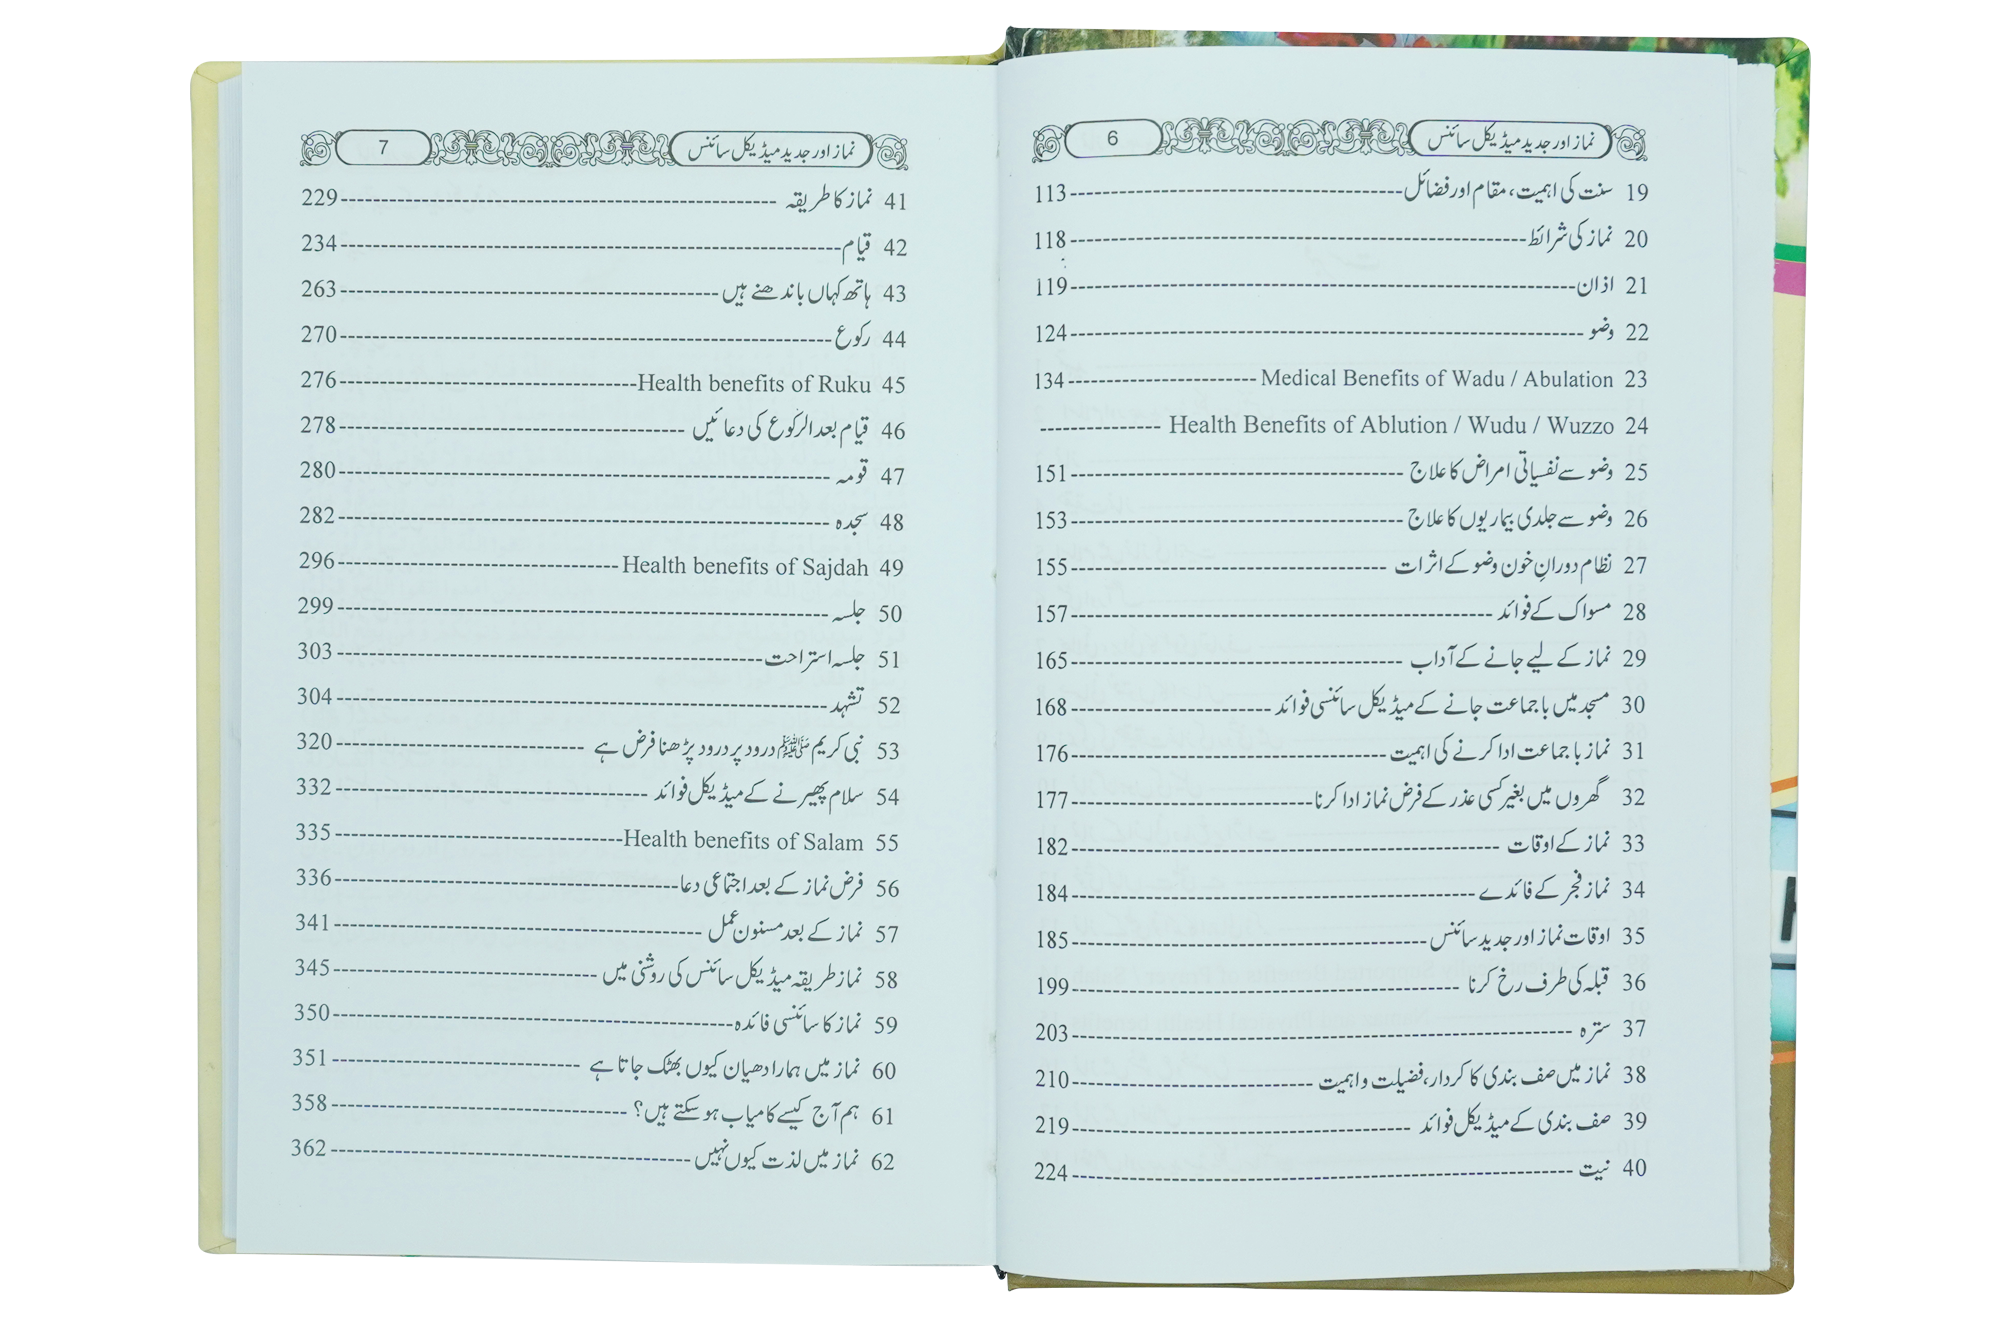 نماز اور جدید میڈیکل سائنس 6
19 سنت کی اہمیت، مقام اور فضائل 113
20 نماز کی شرائط 118
21 اذان 119
22 وضو 124
23 Medical Benefits of Wadu / Abulation 134
24 Health Benefits of Ablution / Wudu / Wuzzo
25 وضو سے نفسیاتی امراض کا علاج 151
26 وضو سے جلدی بیماریوں کا علاج 153
27 نظام دورانِ خون وضو کے اثرات 155
28 مسواک کے فوائد 157
29 نماز کے لیے جانے کے آداب 165
30 مسجد میں باجماعت جانے کے میڈیکل سائنسی فوائد 168
31 نماز باجماعت ادا کرنے کی اہمیت 176
32 گھروں میں بغیر کسی عذر کے فرض نماز ادا کرنا 177
33 نماز کے اوقات 182
34 نماز فجر کے فائدے 184
35 اوقات نماز اور جدید سائنس 185
36 قبلہ کی طرف رخ کرنا 199
37 سترہ 203
38 نماز میں صف بندی کا کردار، فضیلت و اہمیت 210
39 صف بندی کے میڈیکل فوائد 219
40 نیت 224
نماز اور جدید میڈیکل سائنس 7
41 نماز کا طریقہ 229
42 قیام 234
43 ہاتھ کہاں باندھنے ہیں 263
44 رکوع 270
45 Health benefits of Ruku 276
46 قیام بعد الرکوع کی دعائیں 278
47 قومہ 280
48 سجدہ 282
49 Health benefits of Sajdah 296
50 جلسہ 299
51 جلسہ استراحت 303
52 تشہد 304
53 نبی کریم ﷺ درود پر درود پڑھنا فرض ہے 320
54 سلام پھیرنے کے میڈیکل فوائد 332
55 Health benefits of Salam 335
56 فرض نماز کے بعد اجتماعی دعا 336
57 نماز کے بعد مسنون عمل 341
58 نماز طریقہ میڈیکل سائنس کی روشنی میں 345
59 نماز کا سائنسی فائدہ 350
60 نماز میں ہمارا دھیان کیوں بھٹک جاتا ہے 351
61 ہم آج کیسے کامیاب ہو سکتے ہیں؟ 358
62 نماز میں لذت کیوں نہیں 362